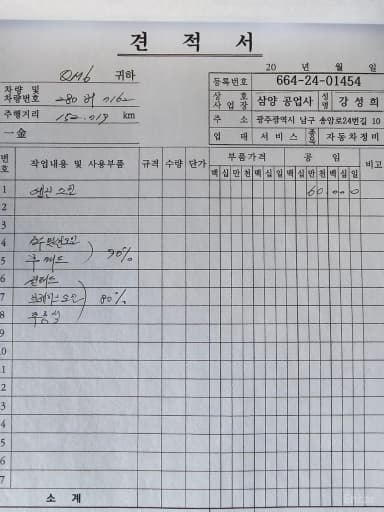 견 적 서
QM6 귀하
20 년 월 일
차량 및
차량번호 280 머 0162
등록번호 664-24-01454
상 호
사업장 삼양 공업사 성명 강성희
주행거리 152.019 km
주 소 광주광역시 남구 송암로24번길 10
一金
업 태 서비스 종목 자동차정비
번호 작업내용 및 사용부품 규격 수량 단가 부품가격 공 임 비고
백 십 만 천 백 십 일 백 십 만 천 백 십 일
1 엔진오일 60.000
2
3
4
5 90%
6
7 브레이크오일 80%
8
9
0
1
2
3
4
5
6
7
소 계